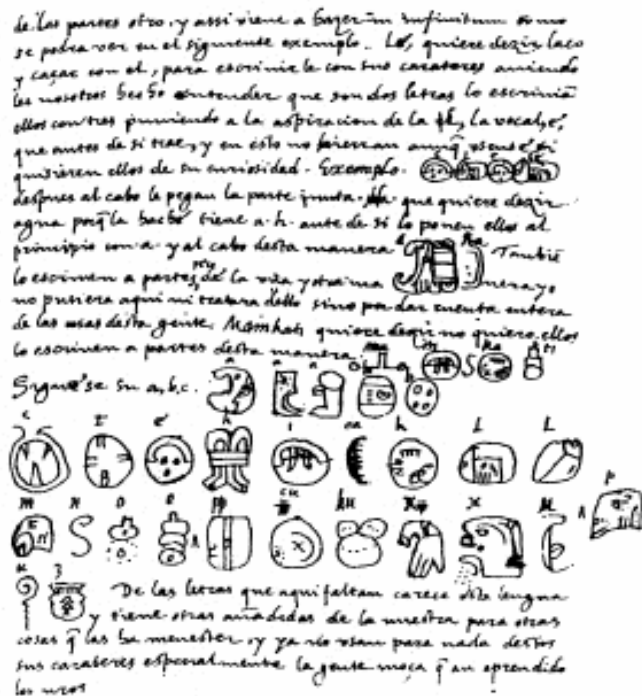 de las partes otro, y assi viene a hazer in infinitum como
se podra ver en el siguiente exemplo. Lé, quiere dezir laço
y caçar con el, para escrivirle con sus carateres aviendo
les nosotros hecho entender que son dos letras lo escrivian
ellos con tres puniendo a la aspiracion de la la vocal, é,
que antes de si trae, y en esto no hierran aunq̃ si
quisieren ellos de su curiosidad. Exemplo.
despues al cabo le pegan la parte junta. Ha que quiere dezir
agua porq̃ la hache tiene a. h. ante de si lo ponen ellos al
principio con a. y al cabo desta manera ha Tambiẽ
lo escriven a partes pero de la una y otra ma nera yo
no pusiera aqui ni tratara dello sino por dar cuenta entera
de las cosas desta gente. Mainkati quiere dezir no quiero, ellos
lo escriven a partes desta manera: ma i n ka ti
Siguese su a, b, c. a a a b b
c t é h i ca k l l
m n o o pp cu ku x x u p
u z De las letras que aqui faltan carece esta lengua
y tiene otras añadidas de la nuestra para otras
cosas q̃ las ha menester, y ya no usan para nada destos
sus carateres especialmente la gente moça q̃ an aprendido
los nros